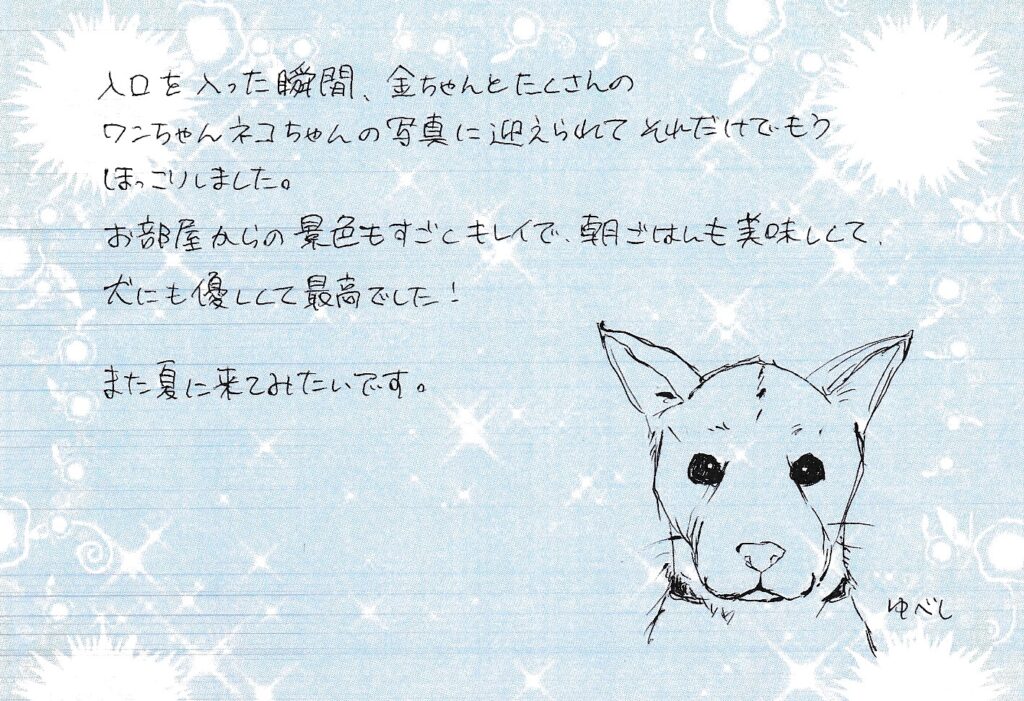 入口を入った瞬間、金ちゃんとたくさんの
ワンちゃんネコちゃんの写真に迎えられてそれだけでもう
ほっこりしました。
お部屋からの景色もすごくキレイで、朝ごはんも美味しくて、
犬にも優しくて最高でした!
また夏に来てみたいです。
ゆべし